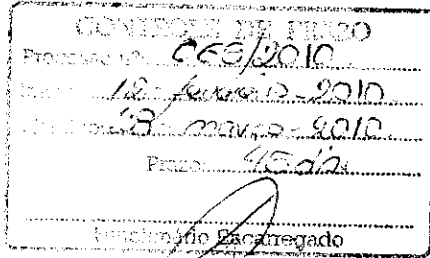 CONTROLE DE PRAZO
Processo nº /2010
12 - fevereiro - 2010
28 - março - 2010
Prazo 45 dias
Funcionário Encarregado